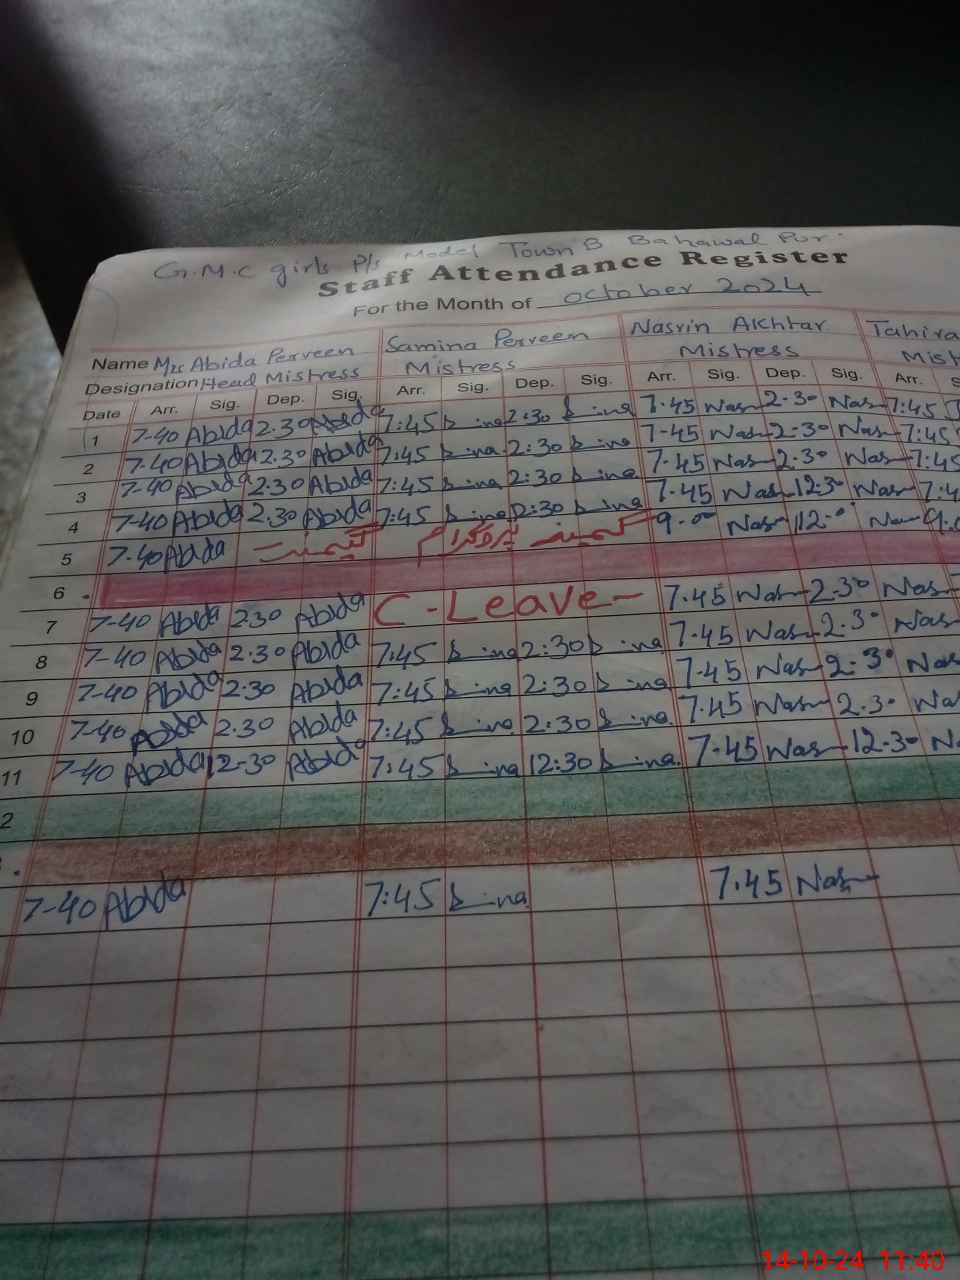 G.M.C girls P/s Model Town B Bahawal Pur.
Staff Attendance Register
For the Month of October 2024
Name Mrs Abida Perveen Samina Perveen Nasrin Akhtar Tahira
Designation Head Mistress Mistress Mistress Mist
Date Arr. Sig. Dep. Sig. Arr. Sig. Dep. Sig. Arr. Sig. Dep. Sig. Arr. S
1 7-40 Abida 2.30 Abida 7:45 2:30 7.45 Nas 2.30 Nas 7:45
2 7-40 Abida 2.30 Abida 7:45 2:30 7-45 Nas 2-30 Nas 7:45
3 7-40 Abida 2.30 Abida 7:45 2:30 7.45 Nas 2.30 Nas 7:45
4 7-40 Abida 2.30 Abida 7:45 7.45 Nas 12.30 Nas 7:4
5 7-40 Abida پروگرام 9.00 Nas 12.0 Nas 9.0
6
7 7-40 Abida 2.30 Abida C-Leave- 7.45 Nas 2.30 Nas
8 7-40 Abida 2.30 Abida 7:45 2:30 7.45 Nas 2.30 Nas
9 7-40 Abida 2.30 Abida 7:45 2:30 7.45 Nas 2.30 Nas
10 7-40 Abida 2.30 Abida 7:45 2:30 7.45 Nas 2.30 Na
11 7-40 Abida 12-30 Abida 7:45 12:30 7.45 Nas 12.30 N
2
7-40 Abida 7:45 7.45 Nas
14-10-24 11:40